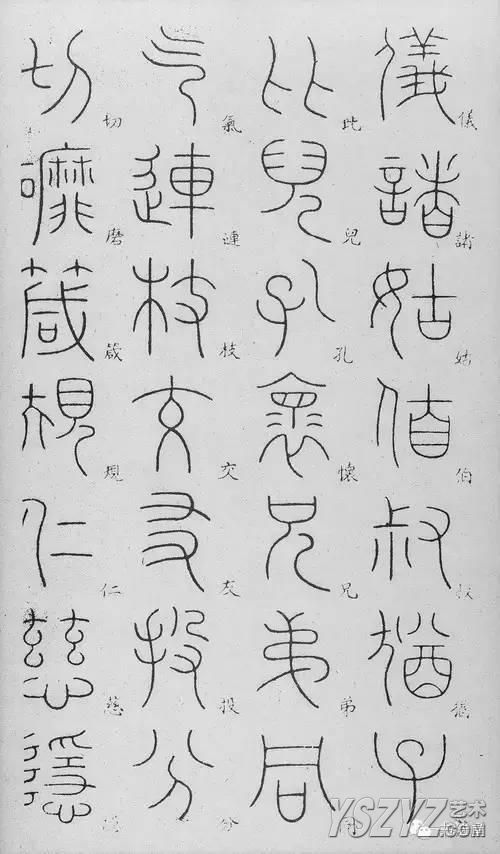 儀諸姑伯叔猶子
比兒孔懷兄弟同
氣連枝交友投分
切磨箴規仁慈隱
YSZYZ 艺术
.COM